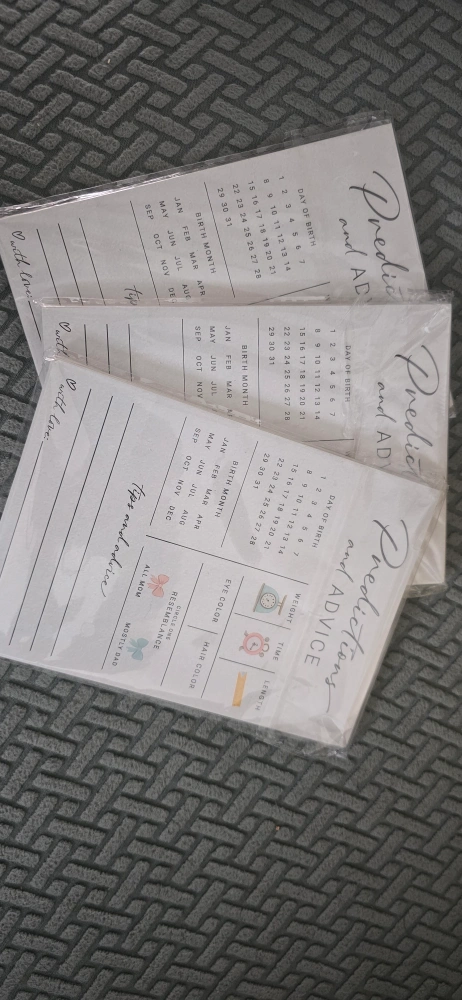 Predictions
and ADVICE
DAY OF BIRTH
1 2 3 4 5 6 7
8 9 10 11 12 13 14
15 16 17 18 19 20 21
22 23 24 25 26 27 28
29 30 31
BIRTH MONTH
JAN FEB MAR APR
MAY JUN JUL AUG
SEP OCT NOV DEC
WEIGHT TIME LENGTH
EYE COLOR HAIR COLOR
CIRCLE ONE
RESEMBLANCE
ALL MOM MOSTLY DAD
Tips and advice
with love:
Predic
and ADV
DAY OF BIRTH
1 2 3 4 5 6 7
8 9 10 11 12 13 14
15 16 17 18 19 20 21
22 23 24 25 26 27 28
29 30 31
BIRTH MONTH
JAN FEB MAR
MAY JUN JUL
SEP OCT NOV
with
Predic
and AD
DAY OF BIRTH
1 2 3 4 5 6 7
8 9 10 11 12 13 14
15 16 17 18 19 20 21
22 23 24 25 26 27 28
29 30 31
BIRTH MONTH
JAN FEB MAR APR
MAY JUN JUL AUG
SEP OCT NOV DE
Tip
with love: